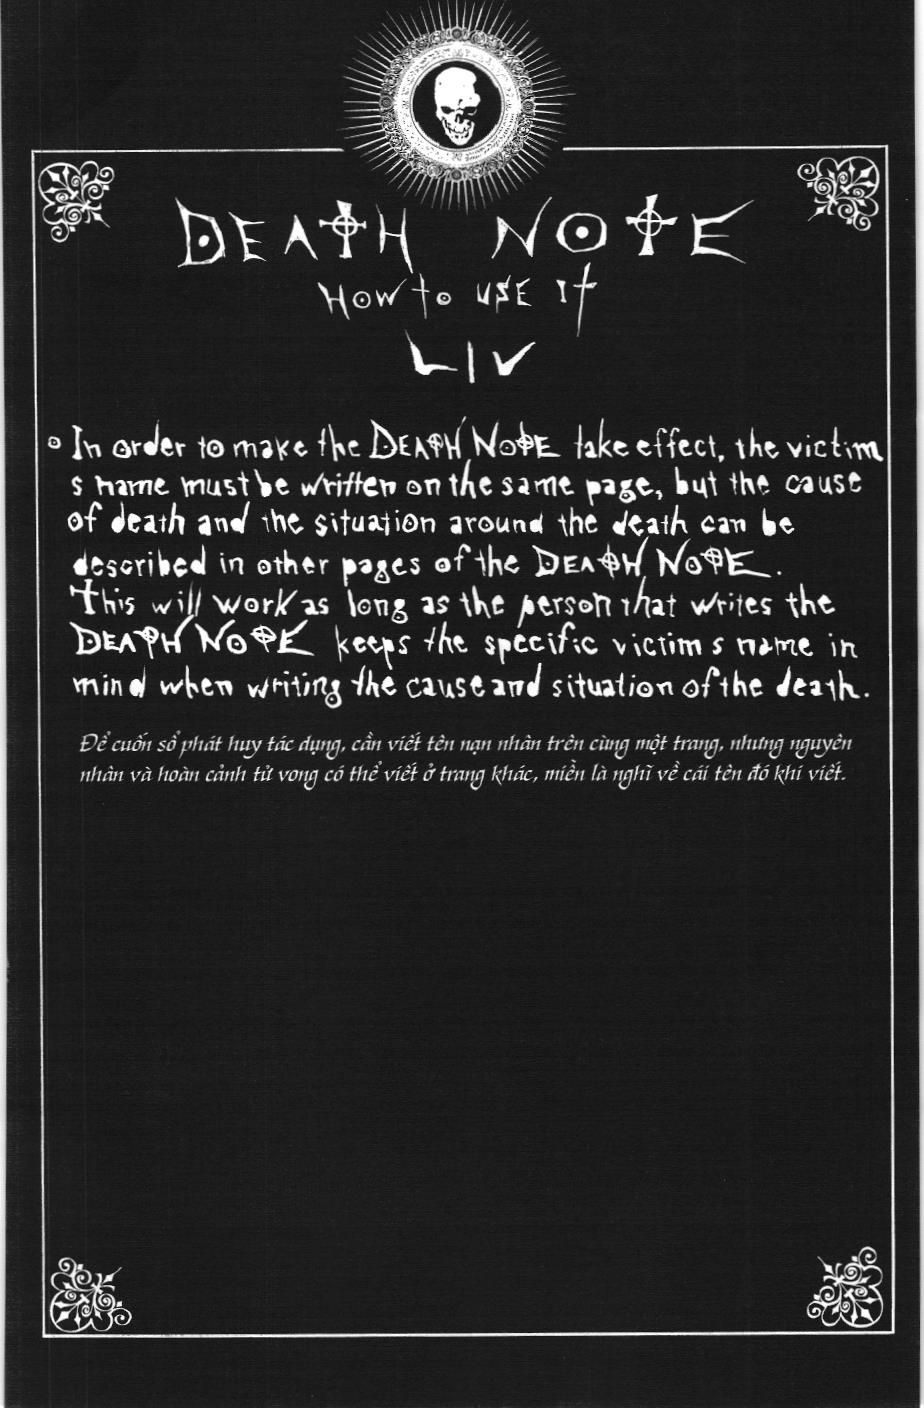 DEATH NOTE
HOW to USE It
LIV
In order to make the DEATH NOTE take effect, the victim
s name must be written on the same page, but the cause
of death and the situation around the death can be
described in other pages of the DEATH NOTE.
This will work as long as the person that writes the
DEATH NOTE keeps the specific victim s name in
mind when writing the cause and situation of the death.
Để cuốn sổ phát huy tác dụng, cần viết tên nạn nhân trên cùng một trang, nhưng nguyên
nhân và hoàn cảnh tử vong có thể viết ở trang khác, miễn là nghĩ về cái tên đó khi viết.